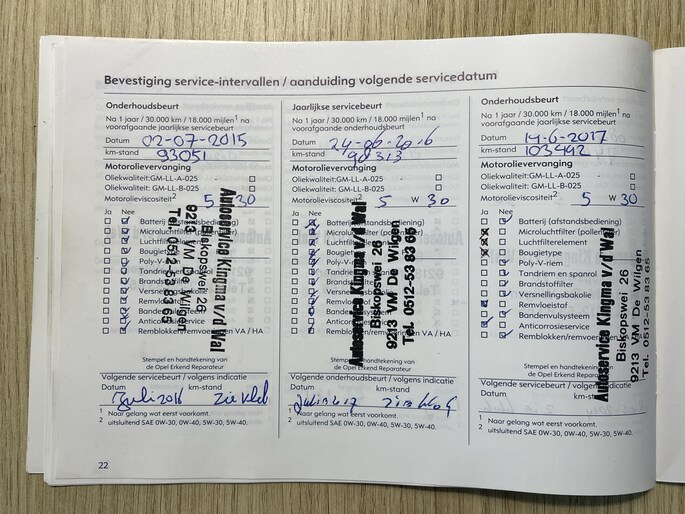 Bevestiging service-intervallen / aanduiding volgende servicedatum
Onderhoudsbeurt
Na 1 jaar / 30.000 km / 18.000 mijlen¹ na
voorafgaande jaarlijkse servicebeurt
Datum 02-07-2015
km-stand 93051
Motorolievervanging
Oliekwaliteit: GM-LL-A-025 -
Oliekwaliteit: GM-LL-B-025
Motorolieviscositeit² 5 30
Ja Nee
Batterij (afstandsbediening)
Microluchtfilter
Luchtfilterelement
Bougietype
Poly-V-riem
Tandriem en
Brandstoffilter
Versnellingsbakolie
Remvloeistof
Bandenvulsysteem
Anticorrosieservice
Remblokken/remvoeringen VA / HA
Autoservice Kingma v/d Wal
Biskopswei 26
9213 VM De Wilgen
Tel. 0512-53 83 65
Stempel en handtekening van
de Opel Erkend Reparateur
Volgende servicebeurt / volgens indicatie
Datum km-stand
Juli 2016
¹ Naar gelang wat eerst voorkomt.
² uitsluitend SAE 0W-30, 0W-40, 5W-30, 5W-40.
22
Jaarlijkse servicebeurt
Na 1 jaar / 30.000 km / 18.000 mijlen¹ na
voorafgaande onderhoudsbeurt
Datum 24-06-2016
km-stand
Motorolievervanging
Oliekwaliteit: GM-LL-A-025 -
Oliekwaliteit: GM-LL-B-025
Motorolieviscositeit² 5 W 30
Ja Nee
Batterij (afstandsbediening)
Microluchtfilter
Luchtfilterelement
Bougietype
Poly-V-riem
Tandriem en
Brandstoffilter
Remvloeistof
Anticorrosieservice
VA / HA
Autoservice Kingma v/d Wal
Biskopswei 26
9213 VM De Wilgen
Tel. 0512-53 83 65
Stempel en handtekening van
de Opel Erkend Reparateur
Volgende onderhoudsbeurt / volgens indicatie
Datum km-stand
¹ Naar gelang wat eerst voorkomt.
² uitsluitend SAE 0W-30, 0W-40, 5W-30, 5W-40.
Onderhoudsbeurt
Na 1 jaar / 30.000 km / 18.000 mijlen¹ na
voorafgaande jaarlijkse servicebeurt
Datum 14-6-2017
km-stand 103492
Motorolievervanging
Oliekwaliteit: GM-LL-A-025 -
Oliekwaliteit: GM-LL-B-025
Motorolieviscositeit² 5 W 30
Ja Nee
Batterij (afstandsbediening)
Microluchtfilter
Luchtfilterelement
Bougietype
Poly-V-riem
Tandriem en spanrol
Brandstoffilter
Versnellingsbakolie
Remvloeistof
Bandenvulsysteem
Anticorrosieservice
Autoservice Kingma v/d Wal
Biskopswei 26
9213 VM De Wilgen
Tel. 0512-53 83 65
Stempel en
de Opel Erkend Reparateur
Volgende servicebeurt / volgens indicatie
Datum km-stand
¹ Naar gelang wat eerst voorkomt.
² uitsluitend SAE 0W-30, 0W-40, 5W-30, 5W-40.